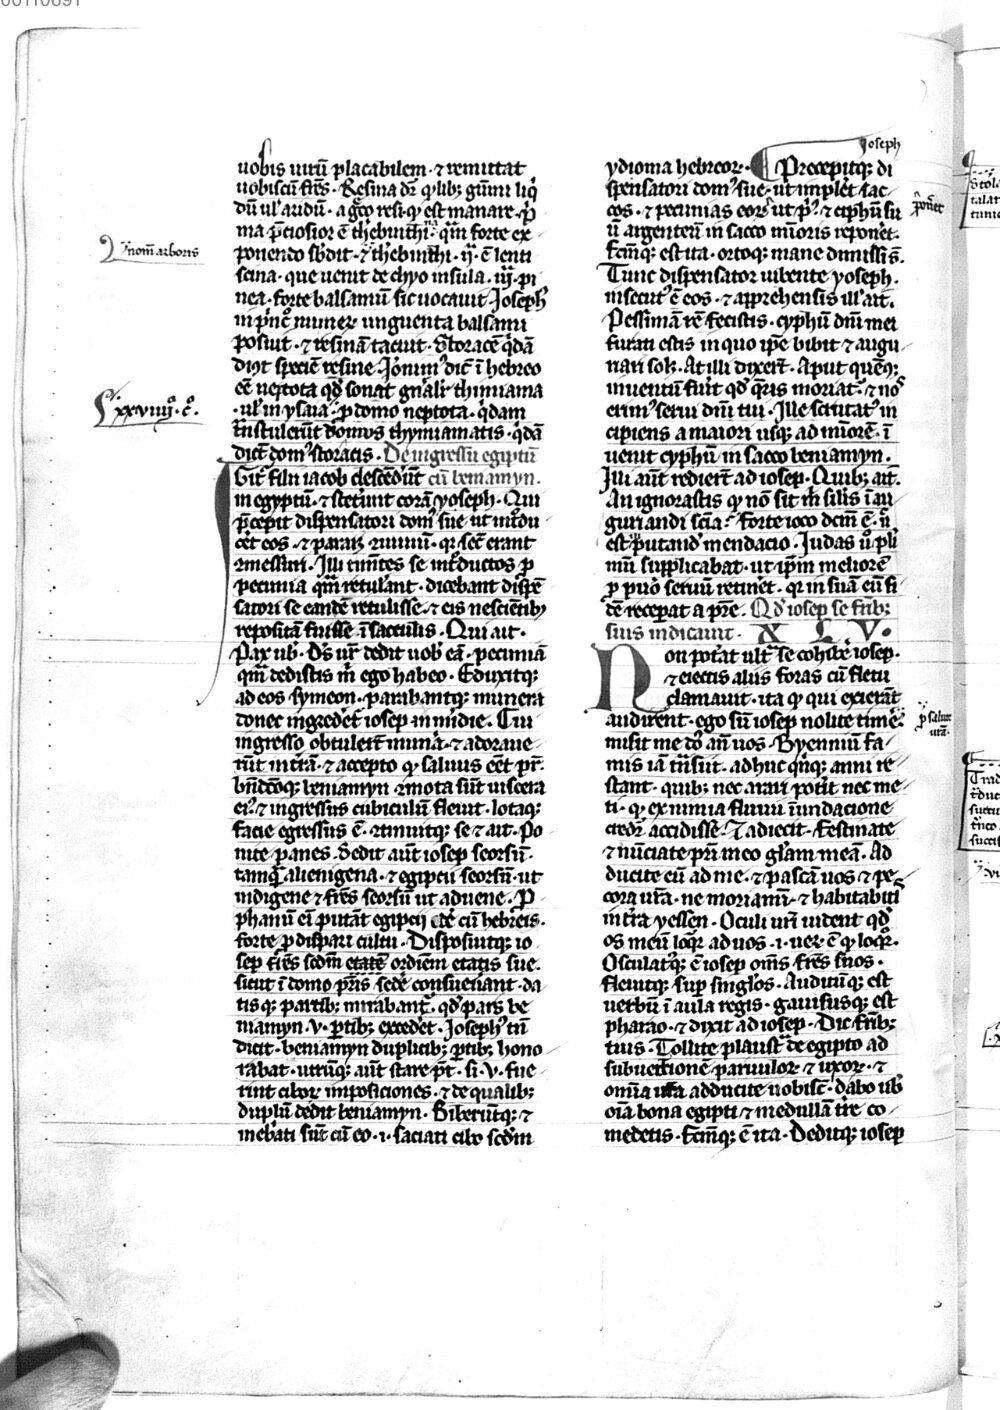 uobis uirū placabilem · ⁊ remittat
uobiscū frēs · Resina dr̄ qͥlibꝫ gūmi liq̄
dū ul' aridū · a greco resi · qͥ est manare · p̄
ma p̄ciosior ē thebinthi · qm̄ forte ex
ponendo sb̄dit · ⁊ thebinthi · ij · ē lenti
scina · que uenit de chyo insula · iij · pi
nea · forte balsamū sic uocauit Joseph'
in p̄nc̄ munere unguenta balsami
posuit · ⁊ resinā tacuit · Storacē qͥdā
dicūt speciē resine · Jeronim' dic̄ ī hebreo
eē neptota qd̄ sonat gn̄alr̄ thimiama
· ul' in ysaia · p̄ domo neptota · qͥdam
trāstulerūt domus thymiamatis · qͥdā
dic̄t dom' storacis · De ingressu egiptū
Jgit̄ filii iacob descēdūt cū beniamyn ·
in egyptū · ⁊ steterūt corā yoseph · Qui
p̄cepit dispensatori dom' sue ut int̄du
cēt eos · ⁊ pararꝫ ꝯuiuiū · qr̄ sec̄ erant
ꝯmessuri · Jlli tim̄tes se int̄ductos p̄
pecunia quā retul'ant · dicebant dispē
satori se eandē retulisse · ⁊ eis nescientibꝫ
repositā fuisse ī sacculis · Qui ait ·
Pax uob' · Ds̄ ur̄ dedit uob' eā · pecuniā
quā dedistis m̄ ego habeo · Eduxitqꝫ
ad eos symeon · parabantqꝫ munera
donec ingrederet̄ iosep in m̄die · Cui
ingresso obtulert̄ mun̄a · ⁊ adoraue
rūt in tr̄ā · ⁊ accepto qͥ saluus eēt pr̄ ·
bn̄dc̄oqꝫ beniamyn ꝯmota sūt uiscera
ei' · ⁊ ingressus cubiculū fleuit · lotaqꝫ
facie egressus ē · ꝯtinuitqꝫ se ⁊ ait · Po
nite panes · Sedit aūt iosep seorsū ·
tamqͣ alienigena · ⁊ egiptii seorsū · ut
indigene ⁊ frēs seorsū ut aduene · P
phanū ei putāt egiptii edē cū hebreis ·
forte p̄ dispari cultu · Disposuitqꝫ io
sep frēs scd̄m etatē ordiēm etatis sue ·
sicut ī domo pr̄is sedē consueuant · da
tisqꝫ partibꝫ mirabant̄ · qd̄ pars be
niamyn · v · p̄tibꝫ excedet̄ · Joseph' tn̄
dicit · beniamyn duplicibꝫ p̄tibꝫ hono
rabat · utrūqꝫ aūt stare p̄t · si · v · fue
rint ciborꝝ imposiciones · ⁊ de qualibꝫ
duplū dedit beniamyn · Biberūtqꝫ · ⁊
inebriati sūt cū eo · i · saciati cibo scd̄m
Joseph
ydioma hebreorꝝ · ¶ Precepitqꝫ di
spensatori dom' sue · ut implet̄ sac
cos · ⁊ pecunias eorꝝ ut p̄' · ⁊ ciphū su
ū argenteū in sacco mīoris reponet̄ ·
Fcm̄qꝫ est ita · ortoqꝫ mane dimissis ·
Tunc dispensator iubente yoseph ·
insecut' ē eos · ⁊ apprehensis ill' ait ·
Pessimā rē fecistis · cyphū dn̄i mei
furati estis in quo ip̄e bibit ⁊ augu
riari sol; · At illi dixert̄ · Aput quēqꝫ
inuentū fuit̄ qd̄ qͥris moriat̄ · ⁊ nos
erim' serui dn̄i tui · Jlle scrutat' in
cipiens a maiori usqꝫ ad mīorē · ī
uenit cyphū in sacco beniamyn ·
Jlli aūt rediert̄ ad iosep · Quibꝫ ait ·
An ignorastis qͥ nō sit m̄ sīlis ī au
guriandi scīa · Forte ioco dcm̄ ē · ul'
est p̄utand' mendacio · Judas u' pl̄i
mū supplicabat · ut ip̄m meliorē
p̄ puero seruū retinet̄ · qr̄ in suā eū fi
dē recepat a pr̄e · Qd̄ iosep se frībꝫ
suis indicauit · X L V ·
Non potat ult̄ se cohib'e iosep ·
⁊ eiectis aliis foras cū fletu
clamauit · ita qͥ qui exierāt
audirent · ego sū iosep nolite timē'e
misit me ds̄ an̄ uos · Byenniū fa
mis iā trāsiit · adhuc qͥnqꝫ anni re
stant · quibꝫ nec arari potit̄ nec me
ti · qͥ ex nimia fluuii īundacione
credit̄ accidisse · Et adiecit · Festinate
⁊ nūciate pr̄i meo gl̄am meā · Ad
ducite eū ad me · ⁊ pascā uos ⁊ pe
cora ur̄a · ne moriamī · ⁊ habitabitis
in tr̄a yessen · Oculi ur̄i uident qd̄
os meū loqr̄ ad uos · i · uer̄ ē qͥ loqr̄ ·
Osculat'qꝫ ē iosep om̄s frēs suos ·
fleuitqꝫ sup̄ singl'os · Auditūqꝫ est
uerbū ī aula regis · gauisusqꝫ est
pharao · ⁊ dixit ad iosep · Dic frībꝫ
tuis · Tollite plaust̄ de egipto ad
subuectionē paruulorꝝ ⁊ uxorꝝ · ⁊
omīa ur̄a adducite uobisc̄ · dabo ub'
oīa bona egipti ⁊ medullā tr̄e co
medetis · Fcm̄qꝫ ē ita · Deditqꝫ iosep
nom̄ arboris
xxviiij · c° ·
p̄onēt
p̄ salute
ur̄ā